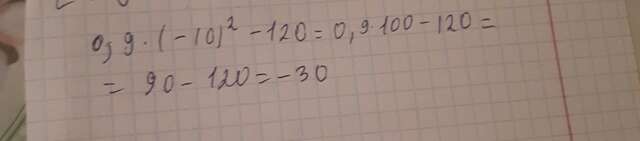 0,9·(-10)²-120=0,9·100-120=
= 90-120=-30